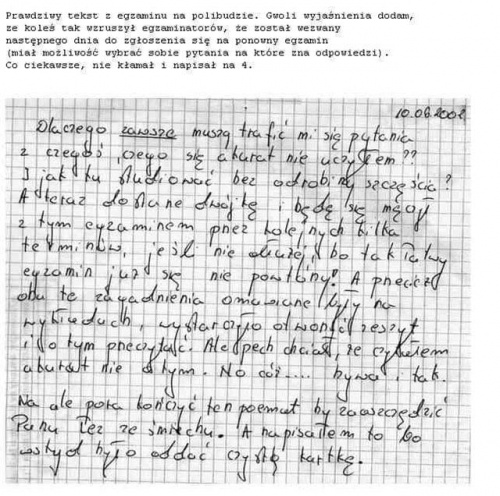 Prawdziwy tekst z egzaminu na polibudzie. Gwoli wyjaśnienia dodam,
ze koleś tak wzruszył egzaminatorów, że został wezwany
następnego dnia do zgłoszenia się na ponowny egzamin
(miał możliwość wybrać sobie pytania na które zna odpowiedzi).
Co ciekawsze, nie kłamał i napisał na 4.
10.06.2002
Dlaczego zawsze muszą trafić mi się pytania
z czegoś, czego się akurat nie uczyłem??
I jak tu studiować bez odrobiny szczęścia?
A teraz dostanę dwójkę i będę się męczył
z tym egzaminem przez kolejnych kilka
terminów, jeśli nie dłużej, bo tak łatwy
egzamin już się nie powtórzy! A przecież
oba te zagadnienia omawiane były na
wykładach, wystarczyło otworzyć zeszyt
i o tym przeczytać. Ale pech chciał, że czytałem
akurat nie o tym. No cóż.... bywa i tak.
Na ale pora kończyć ten poemat by zaoszczędzić
Panu łez ze śmiechu. A napisałem to bo
wstyd było oddać czystą kartkę.